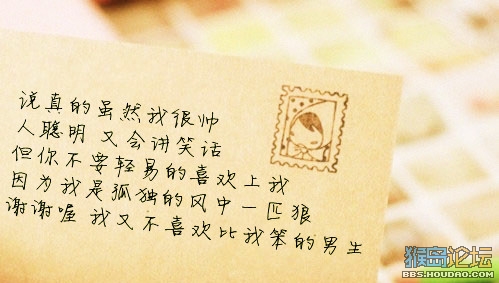 说真的虽然我很帅
人聪明 又会讲笑话
但你不要轻易的喜欢上我
因为我是孤独的风中一匹狼
谢谢喔 我又不喜欢比我笨的男生
猴岛论坛
BBS.HOUDAO.COM